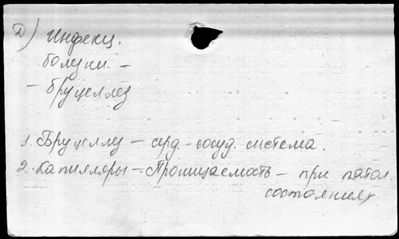 Д) Инфекц.
болезни –
– бруцеллез
1. Бруцеллез – серд.-сосуд. система.
2. Капилляры – Проницаемость – при патол.
состояниях